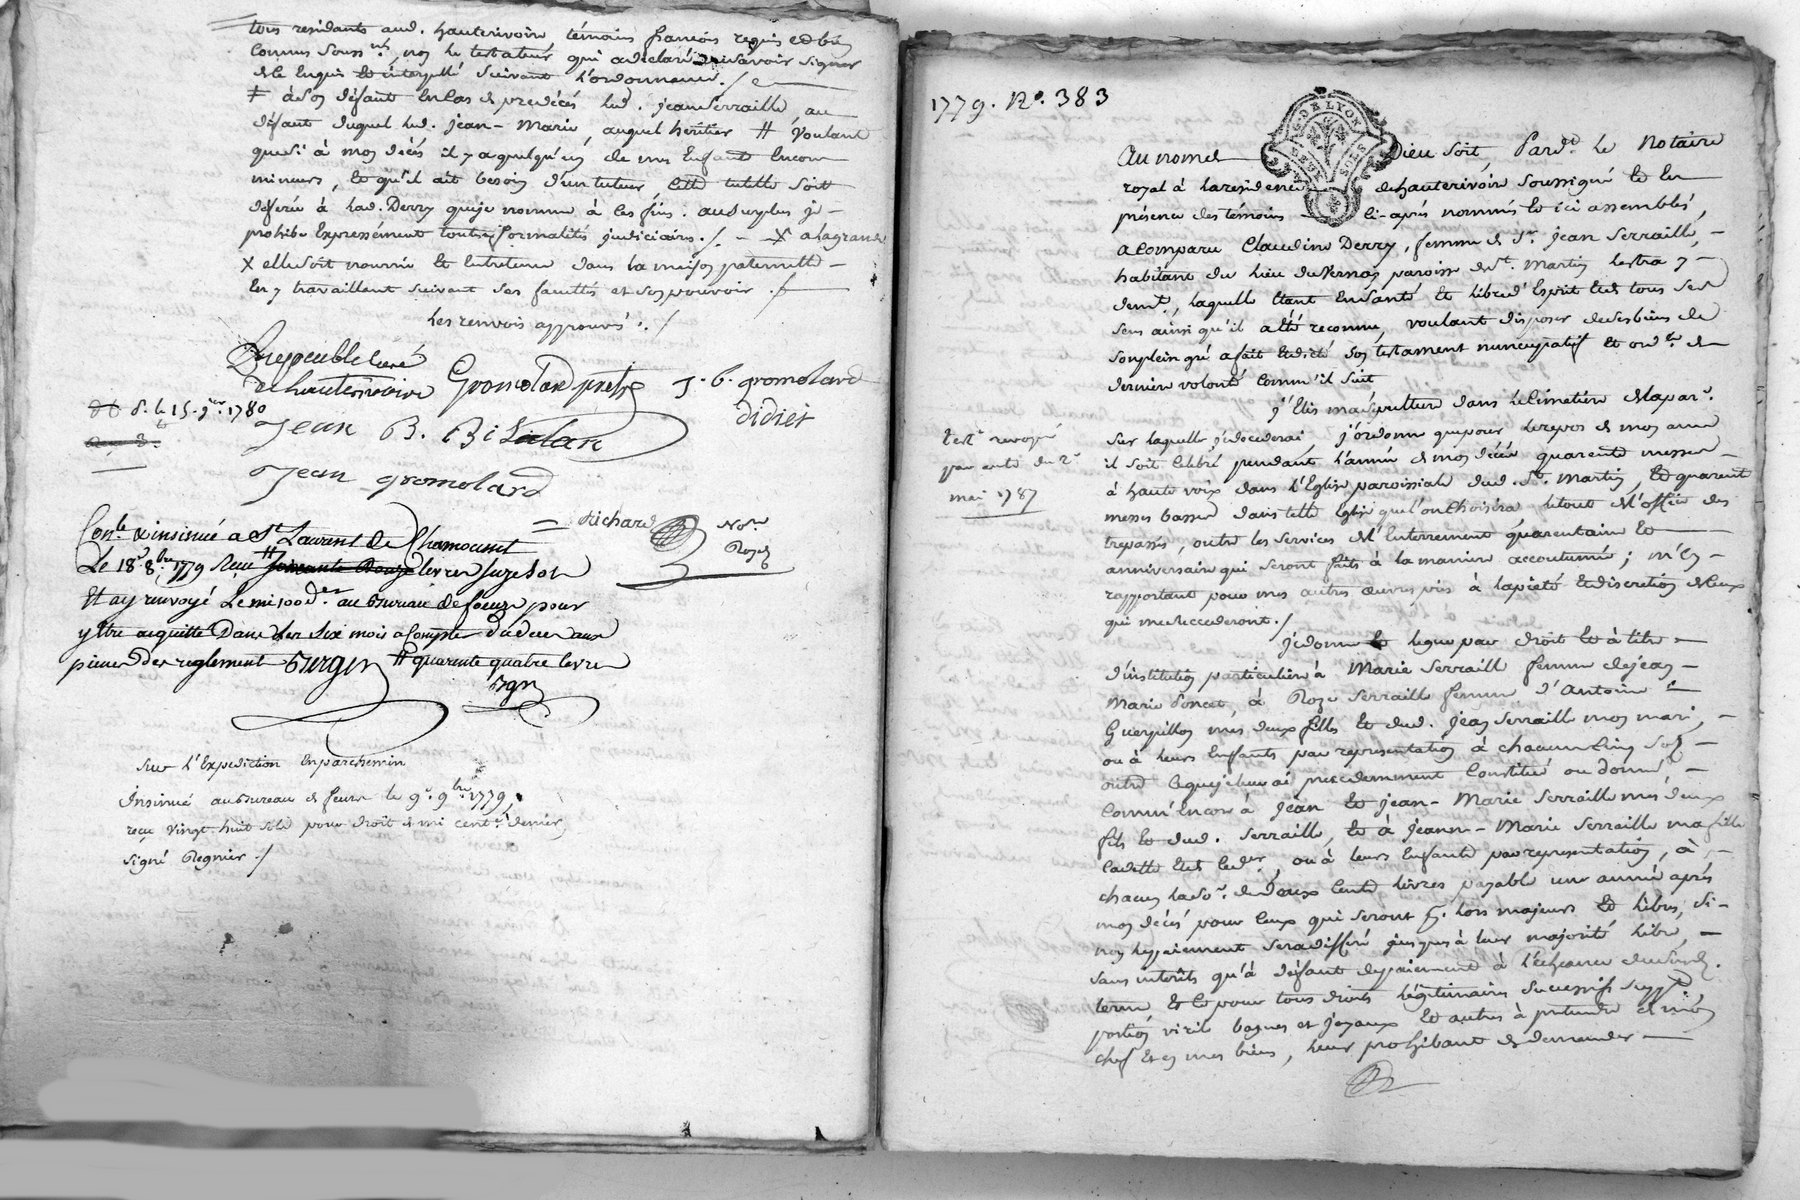 tous residants aud. hauterivoire témoins francois requis et bien
connus sous.nés, non le testateur qui a declaré ne savoir signer
de ce enquis et interpellé suivant l'ordonnance ./.
‡ à son défaut en cas de predécés led. jean Serraille au
défaut duquel led. jean-Marie, auquel heritier # Voulant
que si à mon décés il y a quelqu'un de mes Enfants encore
mineurs, et qu'il ait besoin d'un tuteur, cette tutelle soit
deferée à lad. Derry que je nomme à ces fins. au surplus je
prohibe Expressément toutes formalités judiciaires ./. - X a la grande
X elle soit nourrie et Entretenue dans la maison paternelle
En y travaillant suivant ses facultés et son pouvoir ./.
les renvois approuvés ./.
curé
de hauterivoire Gromolard pretre J. b. gromolard
didiet
d. S. le 15. 9bre. 1780
Jean B. Bi
Jean gromolard
= Richard Nore Royal
Conlé & insinué a St Laurent de Chamousset
Le 18e 8bre 1779 Reçu # soixante Douze livres Suze sols
Et ay renvoyé Le mi 100 der au Bureau de feurs pour
y Etre acquitté Dans Les Six mois a Compter du deces aux
peines des reglement Berger # quarente quatre livres
Bgr
Sur l'Expedition En parchemin
Insinué au Bureau de feurs le 9e. 9bre 1779,
reçu Vingt-huit sols pour droit de mi centme denier
signé Regnier ./.
1779. No. 383
G. DE LYON
DEUX SOLS
Au nom de Dieu soit, Pard. le Notaire
royal à la residence de hauterivoire soussigné et En
présence des témoins ci-après nommés et ici assemblés,
a comparu Claudine Derry, femme de Sr. jean Serraille,
habitant du lieu du Vernay paroisse de St. Martin lestra y
demt., laquelle Etant En santé et libre d'Esprit Et de tous ses
sens ainsi qu'il a été reconnu, voulant disposer de ses biens de
son plein gré a fait Et dicté son testament nuncupatif et ordce de
derniere volonté comm'il suit
j'Elis ma sepulture dans le Cimetiere de la par.
sur laquelle je decederai, j'ordonne que pour le repos de mon ame
il soit celebré pendant l'année de mon décés quarente messes
à haute voix dans l'Eglise paroissiale dud. St. Martin, et quarente
messes basses dans telle Eglise que l'on choisira le tout de l'office des
trepassés, outre les services de l'Enterrement quarentaine et
anniversaire qui seront faits à la maniere accoutumée; m'en
rapportant pour mes autres œuvres pies à la pieté Et discretion de ceux
qui me succederont ./.
testt revoqué
par acte du 2e
mai 1787
je donne et legue par droit et à titre
d'institution particuliere à Marie Serraille femme de jean
Marie Poncet, à Roze Serraille femme d'Antoine
Guerpillon mes deux filles et dud. jean Serraille mon mari,
ou à leurs Enfants par representation à chacune Cinq sols
outre ce que je leur ai precedemment Constitué ou donné
Comm'Encore à jean et jean-Marie Serraille mes deux
fils et dud. Serraille, et à jeanne-Marie Serraille ma fille
Cadette Et de led.er, ou à leurs Enfants par representation, à
chacun la so. de Deux cents livres payable une année après
mon décés pour ceux qui seront p. lors majeurs et libres, si-
non le paiement sera differé jusques à leur majorité libre,
sans interêts qu'à défaut de paiement à l'écheance dud.
terme Et ce pour tous droits légitimaires successifs supplt,
portion virile bagues et joyaux et autres à pretendre de mon
chef Et en mes biens, leur prohibant de demander